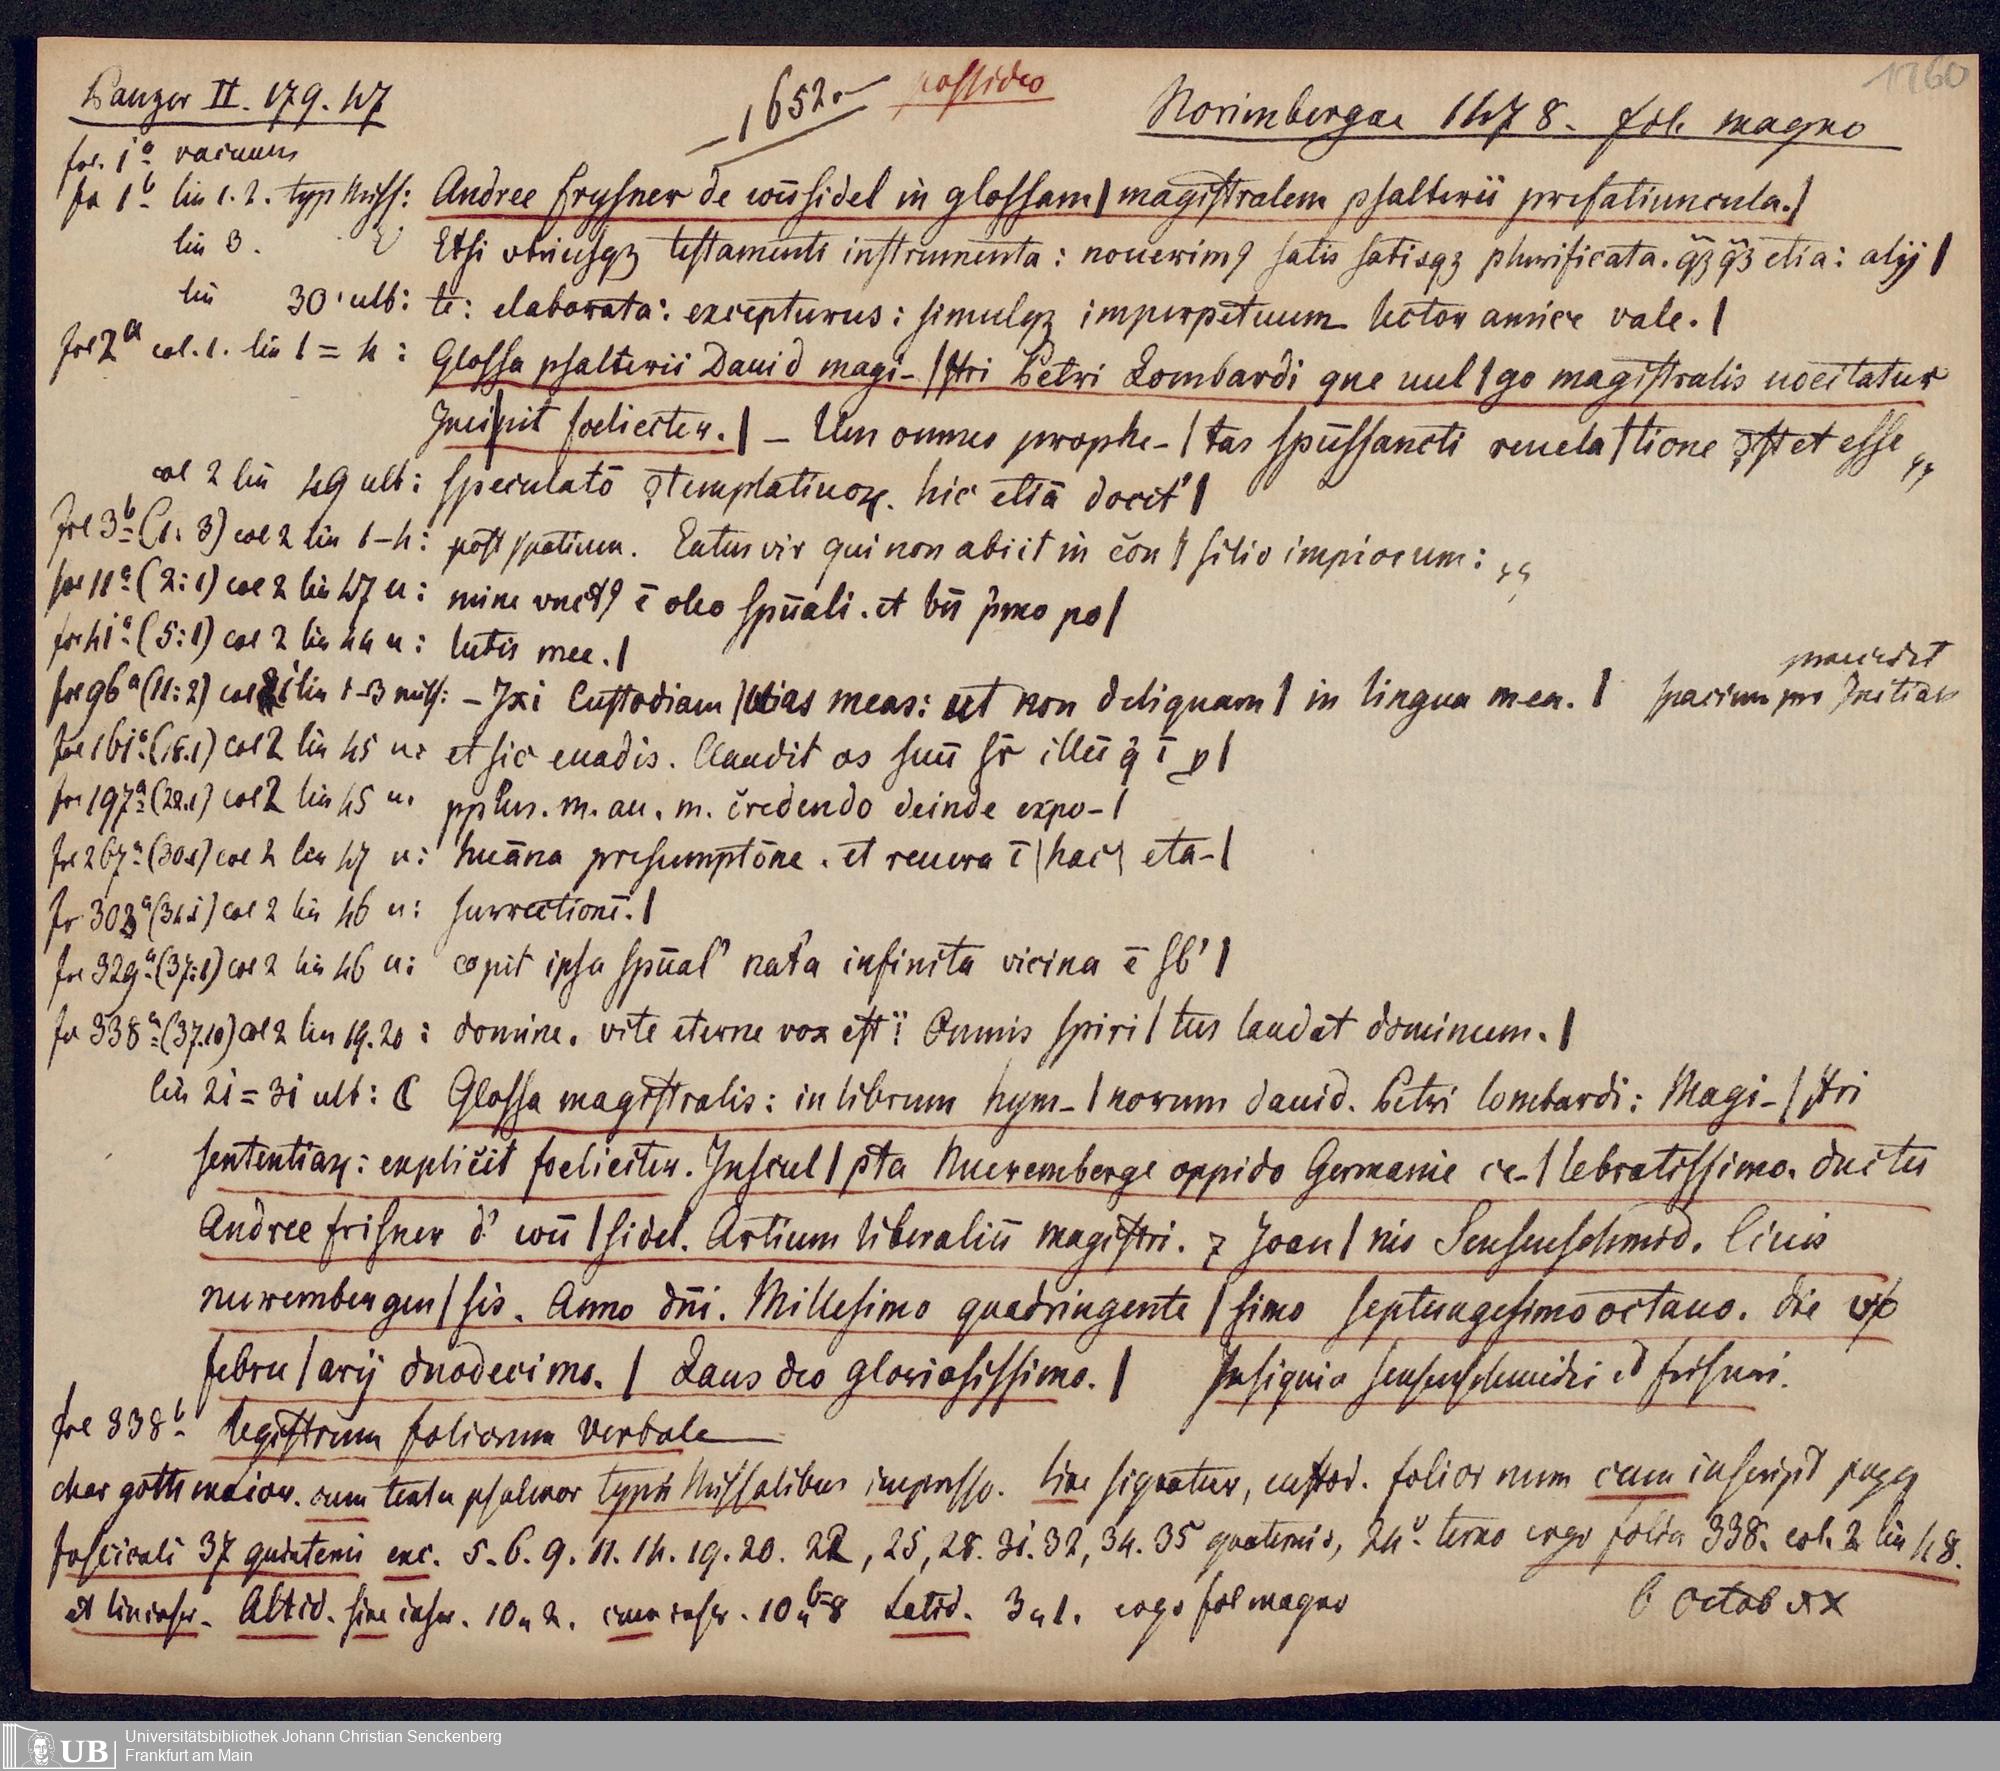 Panzer II. 179. 47
1652.
possideo
1760
Norimbergae 1478. fol. magno
fol. 1a vacuum
fo 1b lin 1. 2. typ Miss: Andree frysner de wūsidel in glossam | magistralem psalterii prefatiuncula. |
lin 3. Etsi vtriusqȝ testamenti instrumenta: nouerimꝯ satis satisqȝ plurificata. q̄ȝ q̄ȝ etia: alij |
lin 30. ult: te: elaborata: excepturus: simulqȝ imperpetuum lector amice vale. |
fol 2a col. 1. lin 1 = 4: Glossa psalterii Dauid magi- | stri Petri Lombardi que uul | go magistralis nocitatur
Inci|pit foeliciter. | – Um omnes prophe- | tas spūssancti reuela | tione ꝯstet esse
col 2 lin 49 ult: speculatō ꝯtemplatiuoꝝ. hic etiā docet' |
fol 3b (1: 3) col 2 lin 1-4: post spatium. Eatus vir qui non abiit in con | silio impiorum:
fol 11a (2: 1) col 2 lin 47 u: mine vnctꝯ ē oleo spūali. et bn̄ pͥmo po |
fol 41a (5: 1) col 2 lin 44 u: lutis mee. |
fol 96a (11: 2) col 1 lin 1-3 miss: – Ixi Custodiam | uias meas: ut non deliquam | in lingua mea. | praecedit spacium pro Initiali
fol 161a (18.1) col 2 lin 45 u: et sic euadis. Claudit os suū sr̄ illū q̄ ī p |
fol 197a (22.1) col 2 lin 45 u. pplus. m. au. m. credendo deinde expo- |
fol 267a (30.1) col 2 lin 47 u: huāna presumptōne. et reuera ī | hac | eta- |
fo 303a (34.1) col 2 lin 46 u: surrectionē. |
fol 329a (37:1) col 2 lin 46 u: cepit ipsa spūal' nat'a infinita vicina ē sb' |
fol 338a (37.10) col 2 lin 19. 20: domine. vite eterne vox est: Omnis spiri | tus laudat dominum. |
lin 21 = 31 ult: C Glossa magistralis: in librum hym- | norum dauid. Petri lombardi: Magi- | stri
sententiaꝝ: explicit foeliciter. Inscul | pta Nuerembergę oppido Germanie ce- | lebratissimo. ductu
Andree frisner d' wū | sidel. Artium liberaliū magistri. ⁊ Joan | nis Sensenschmid. Ciuis
nurembergen | sis. Anno dn̄i. Millesimo quadringente | simo septuagesimo octauo. die v̊o
febru | arij duodecimo. | Laus deo gloriosissimo. | Insignia Sensenschmidii et frisneri.
fol 338b Registrum foliorum verbale
char goth maior. cum textu psalmor typis Missalibus impresso. sine signatur, custod. folior num cum inscript pagg
fascicali 37 quinternii exc. 5. 6. 9. 11. 14. 19. 20. 22, 25, 28. 31. 32, 34. 35 quaternis, 24o terno ergo folia 338. col. 2 lin 48.
et lin inscr. Altid. sine inscr. 10 u 2. cum inscr. 10 u 6=8 Latid. 3 u 1. ergo fol magno
6 Octob XX
Universitätsbibliothek Johann Christian Senckenberg
UB Frankfurt am Main